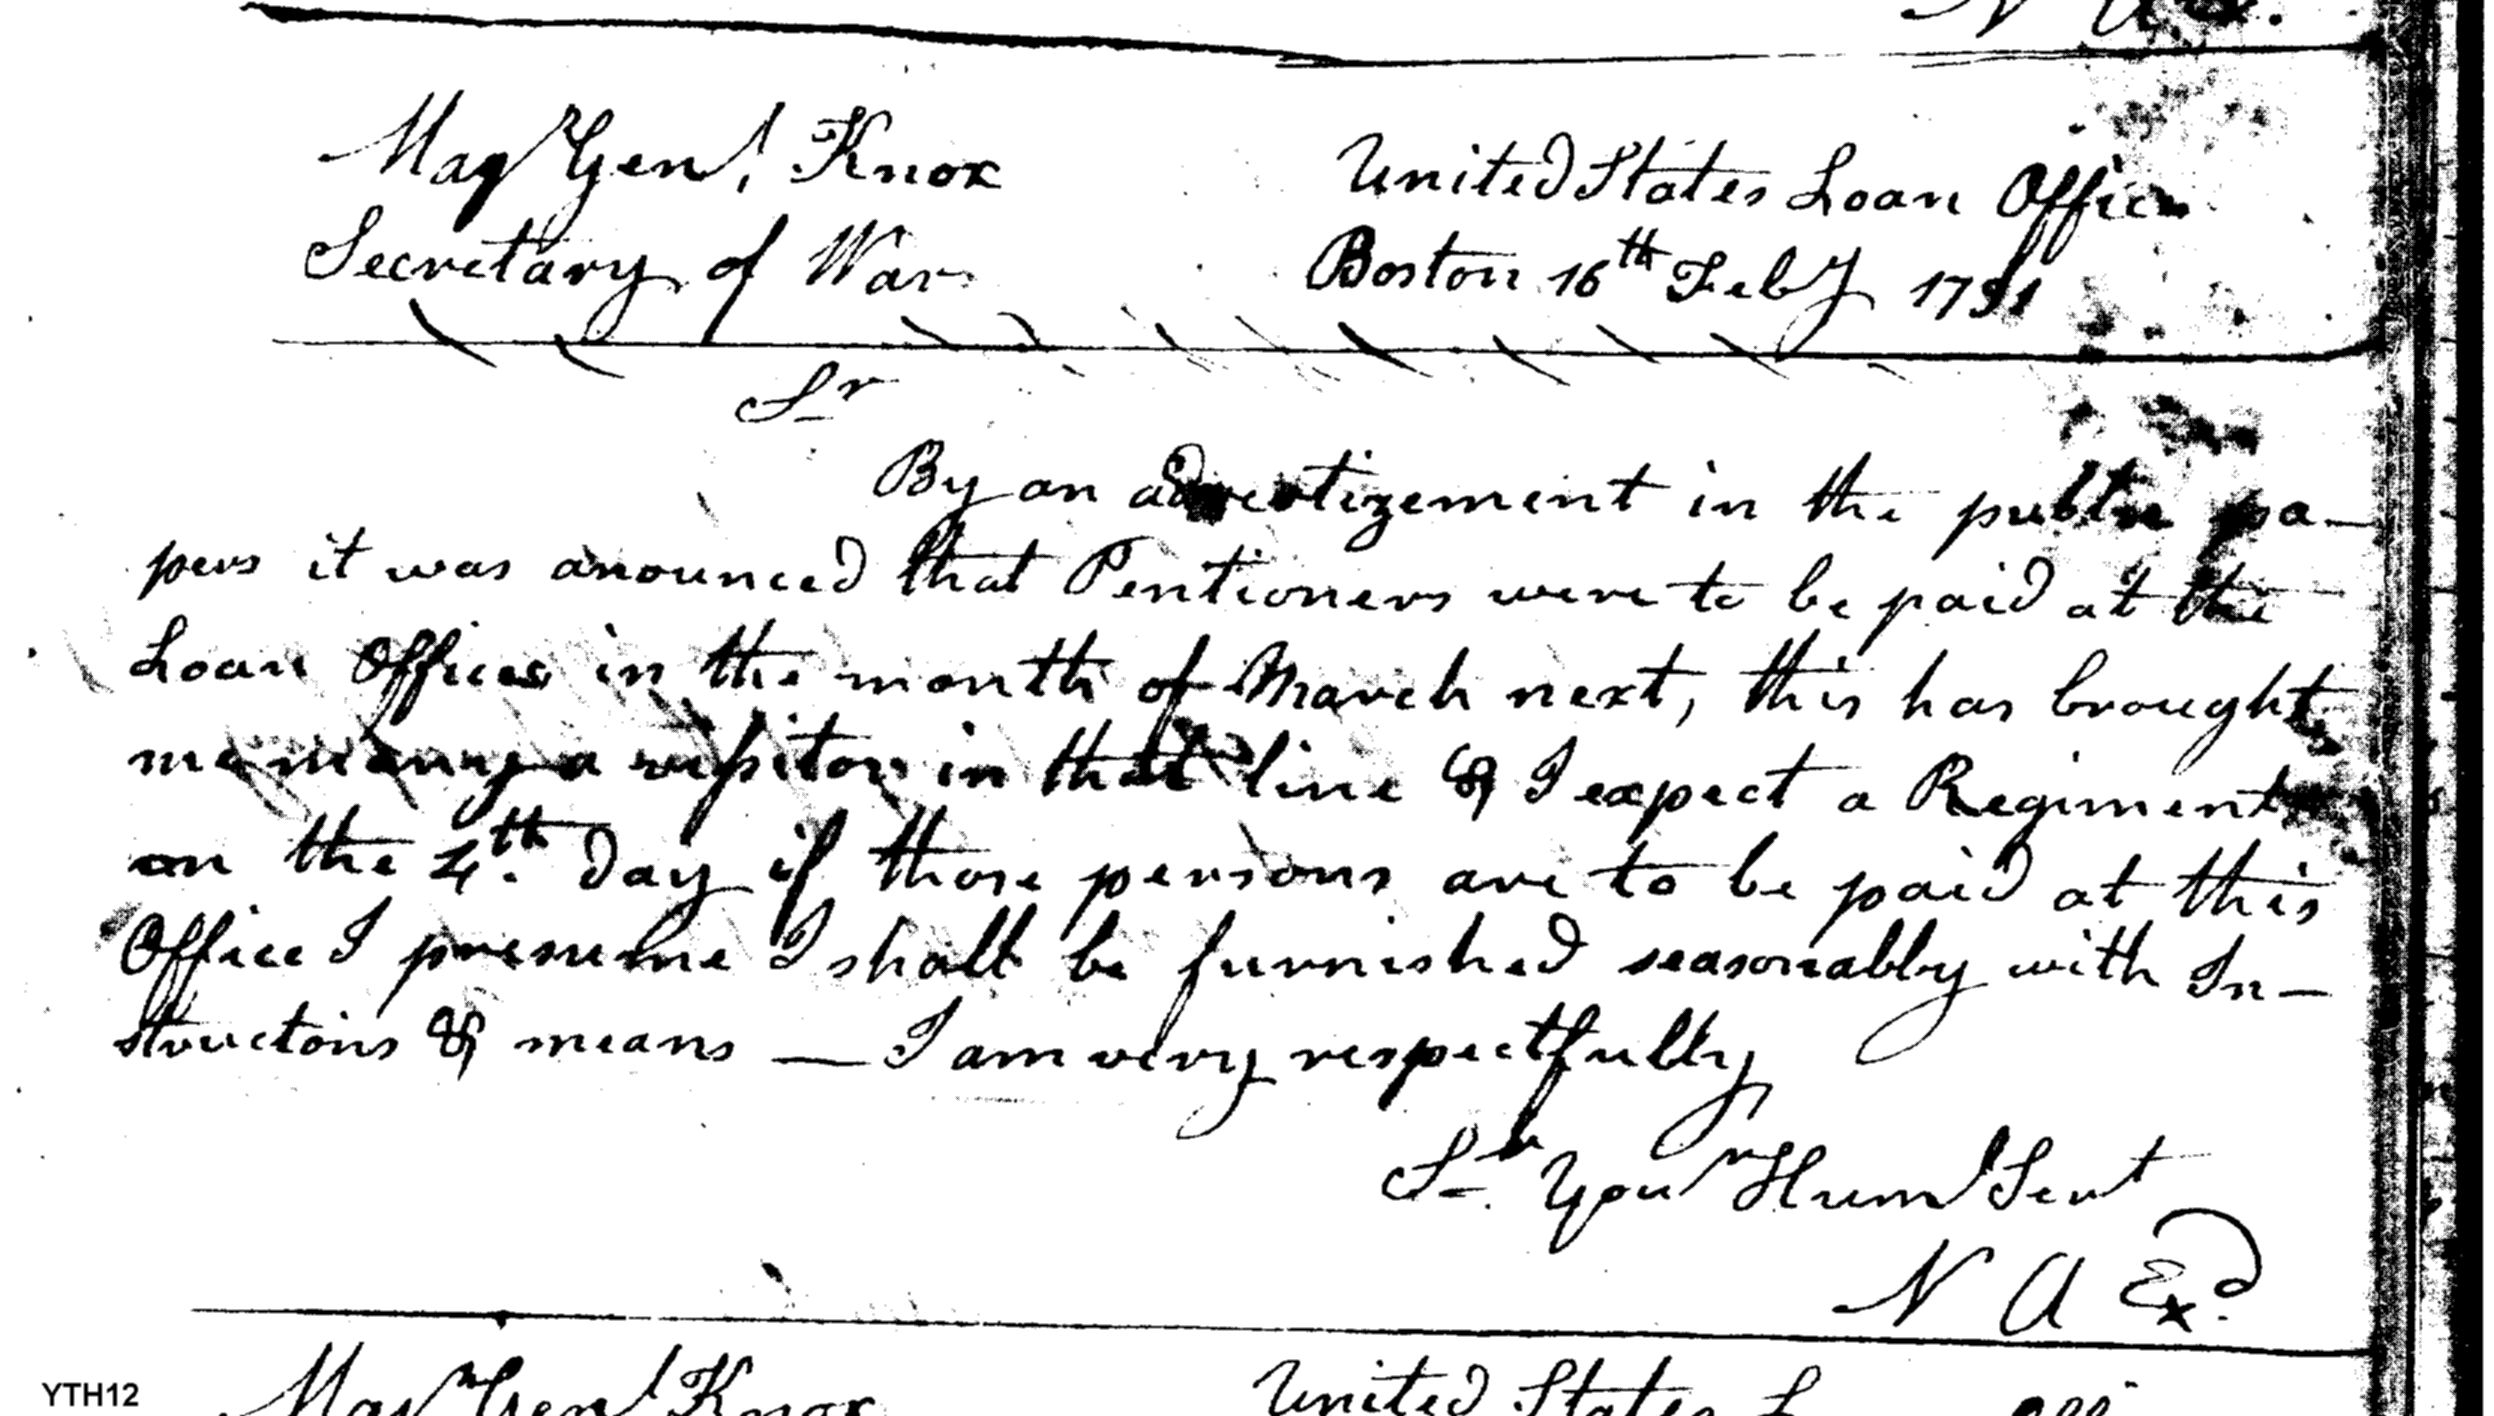 Majr Genl, Knox
Secretary of War
United States Loan Office
Boston 16th Feby 1791
Sr
By an advertizement in the public pa-
pers it was anounced that Pentioners were to be paid at the
Loan Offices in the month of March next, this has brought
me many a vissitor in that line & I expect a Regiment
on the 4th. day if those persons are to be paid at this
Office I presume I shall be furnished seasonably with In-
structions & means — I am very respectfully
Sr. Your Huml Servt
N A
Majr Genl Knox
United States
YTH12